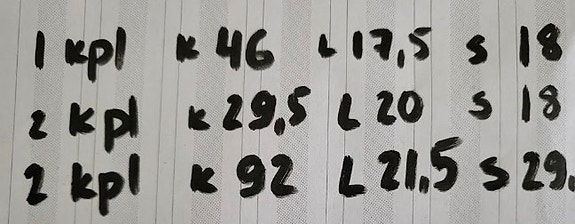 1 kpl K 46 L 17,5 S 18
2 kpl K 29,5 L 20 S 18
2 kpl K 92 L 21,5 S 29.